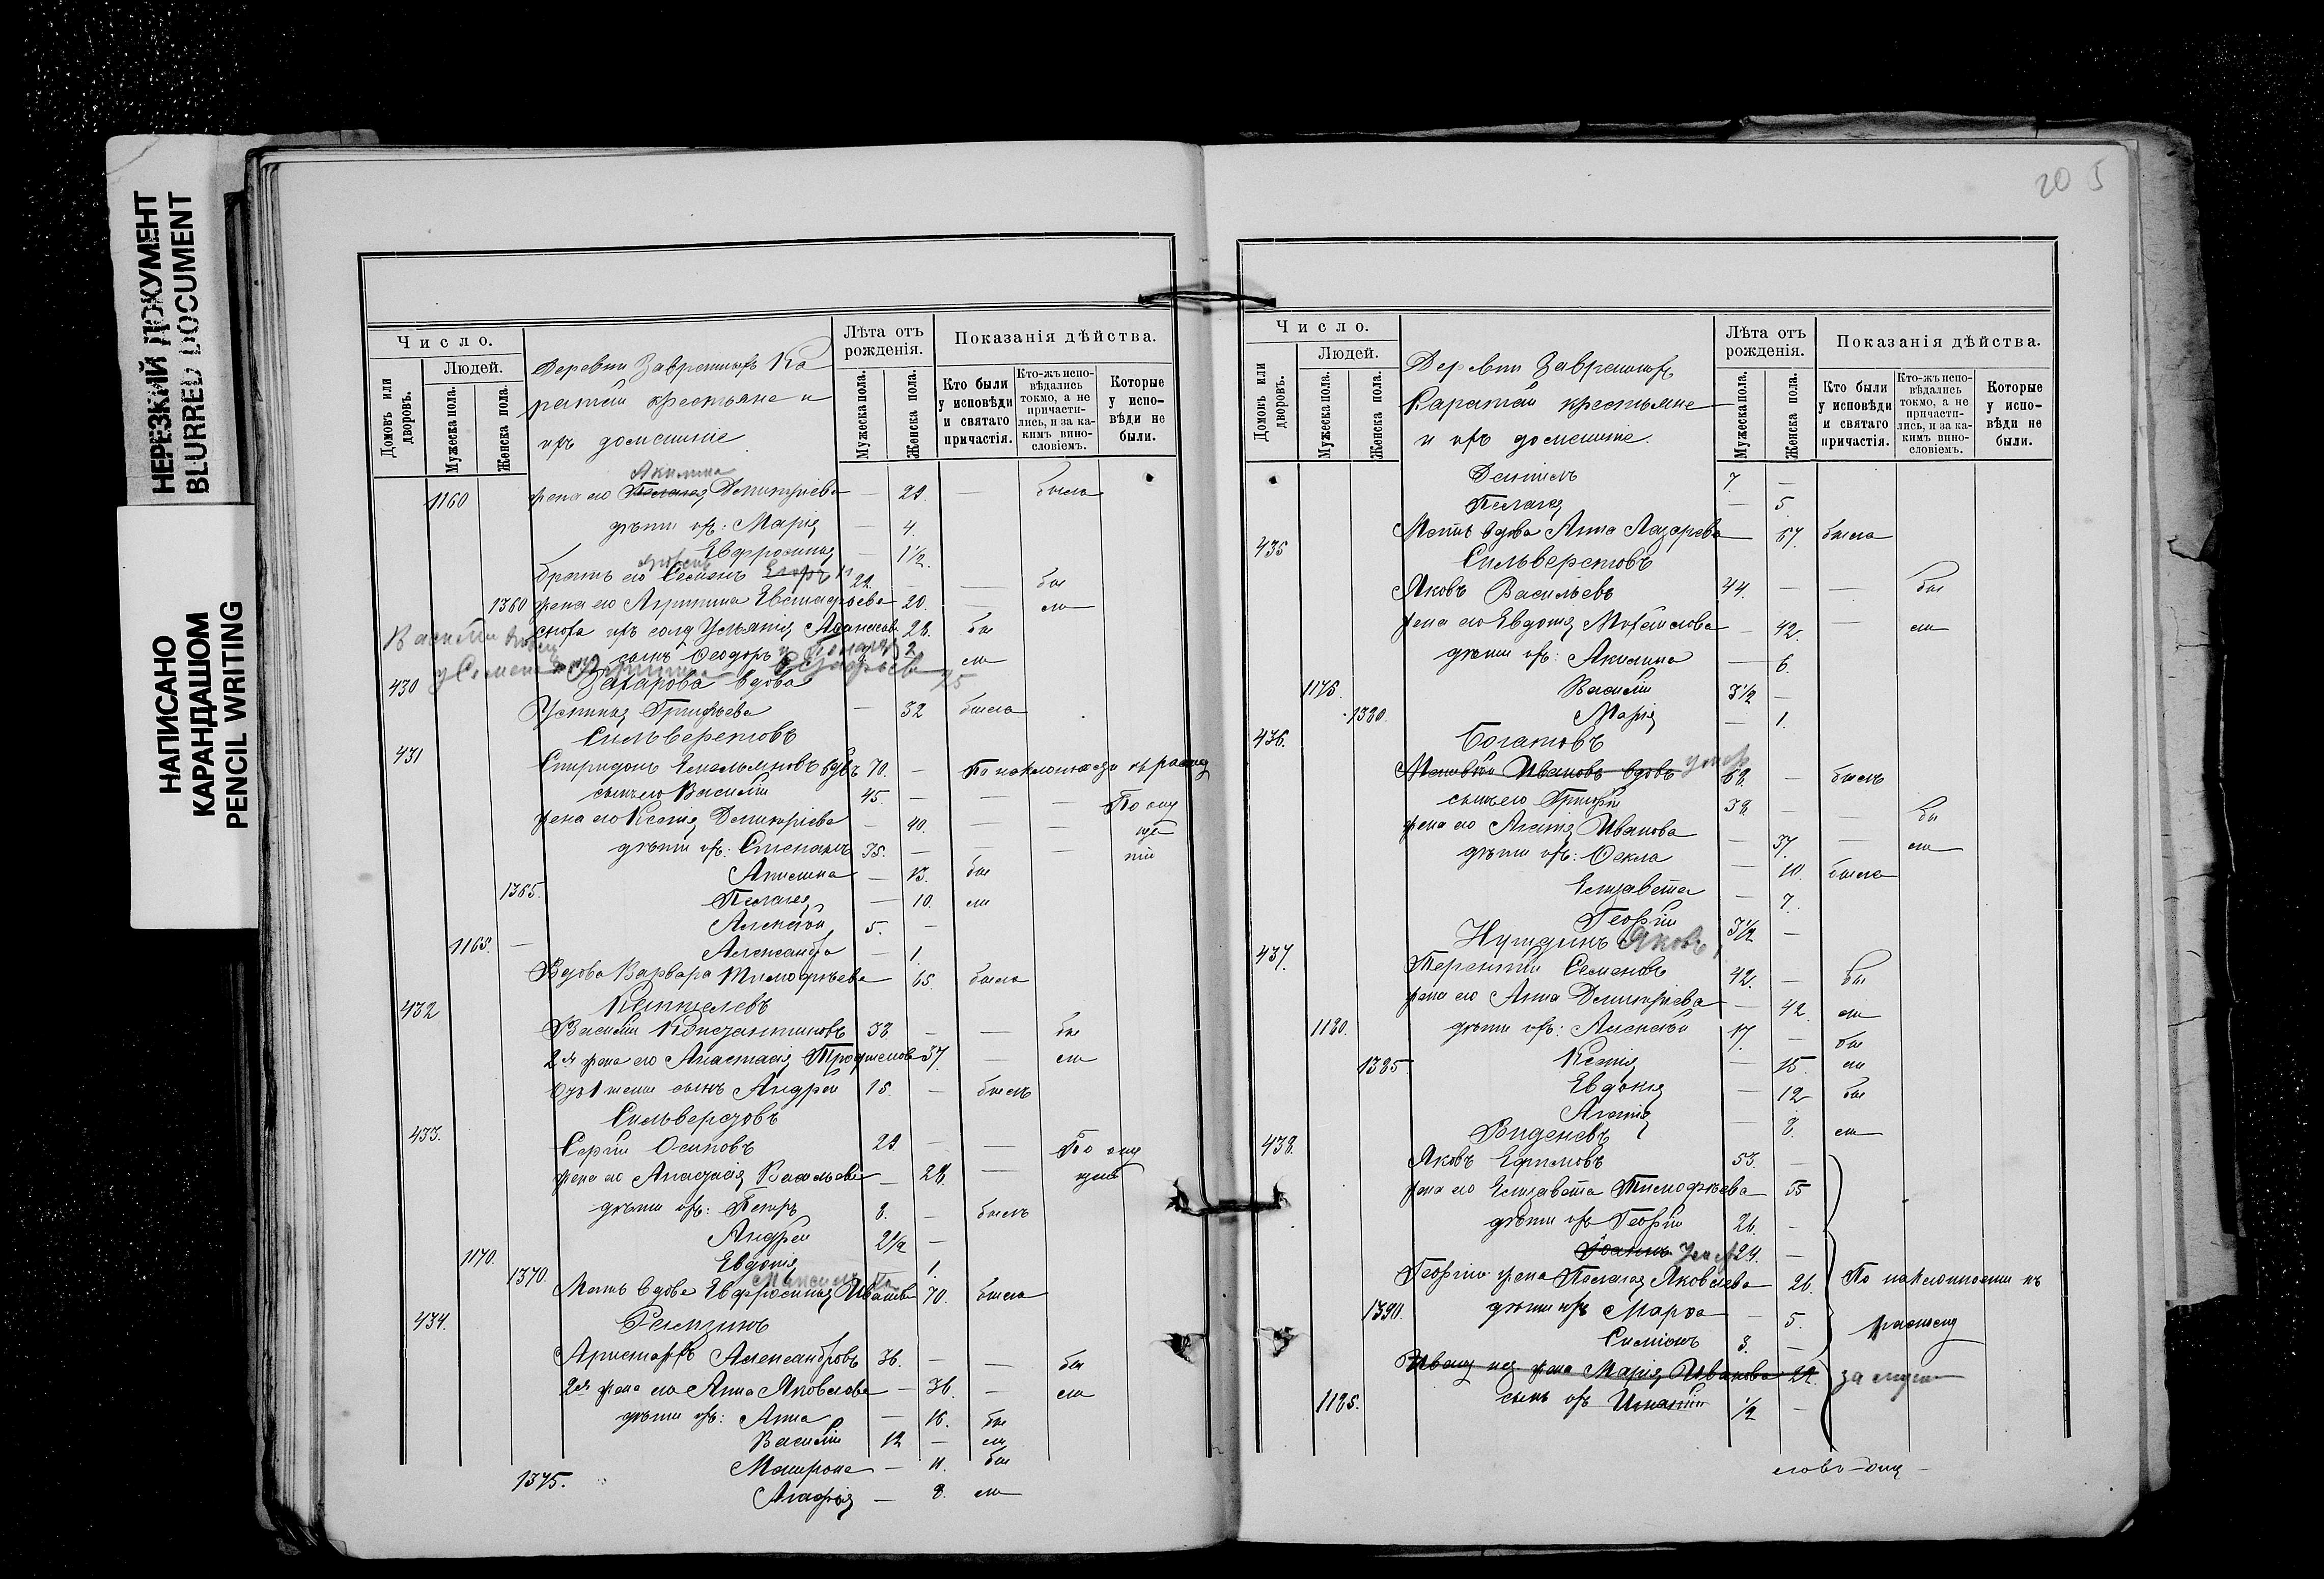 НЕРЕЗКИЙ ДОКУМЕНТ
BLURRED DOCUMENT
НАПИСАНО
КАРАНДАШОМ
PENCIL WRITING
Число.
Домовъ или дворовъ.
Людей.
Мужеска пола.
Женска пола.
Деревни Завражныхъ Ка
ратай крестьяне и
ихъ домашніе
Лѣта отъ рожденія.
Мужеска пола.
Женска пола.
Показанія дѣйства.
Кто были у исповѣди и святаго причастія.
Кто-жъ исповѣдались токмо, а не причастились, и за какимъ винословіемъ.
Которые у исповѣди не были.
Акилина
1160 жена его Пелагея Димитріева — 29. — была
дѣти ихъ: Марія — 4.
Евфросинія — 1½.
братъ его Семенъ 22. — — бы
1360 жена его Агрипина Евстафьева 20. — ли
сноха ихъ солд Ульянія 28. бы
сынъ Ѳеодоръ 2 ли
430 Захарова вдова
Устинія Григорьева — 32 была
431 Сильверстовъ
Спиридонъ Емельяновъ вдвъ 70. — По наклонности къ раско
сынъ его Василій 45. — — — По опу
жена его Ксенія Димитріева — 40. — — ще
дѣти ихъ: Степанъ 15. — — — нію
Акилина — 13. бы
1365. Пелагея — 10. ли
Алексѣй 5. —
1165. — Александра — 1.
Вдова Варвара Тимофѣева 65. была
432
Василій Константиновъ 38 — — бы
2я жена его Анастасія Трофимова 37. — ли
отъ 1 жены сынъ Андрей 15. — былъ
433. Сильверстовъ
Сергій Осиповъ 29 — — По опу
жена его Анастасія Васильева — 28. —
дѣти ихъ: Петръ 8. — былъ
1170. Андрей 2½ —
1370. Евдокія 1.
Мать вдова Евфросинія Иванова 70. была
434. Ремзинъ
Аристархъ Александровъ 36. — — бы
2я жена его Анна Яковлева — 36. — ли
дѣти ихъ: Анна — 16. бы
Василій 12 — ли
Матрона — 11. бы
1375. Агафія — 8. ли
205
Число.
Домовъ или дворовъ.
Людей.
Мужеска пола.
Женска пола.
Деревни Завражныхъ
Каратай крестьяне
и ихъ домашніе.
Лѣта отъ рожденія.
Мужеска пола.
Женска пола.
Показанія дѣйства.
Кто были у исповѣди и святаго причастія.
Кто-жъ исповѣдались токмо, а не причастились, и за какимъ винословіемъ.
Которые у исповѣди не были.
Даніилъ 7. —
Пелагея — 5.
Мать вдова Анна Лазарева 67. была
435 Сильверстовъ
Яковъ Васильевъ 44. — — бы
жена его Евдокія Михайлова — 42. — ли
дѣти ихъ: Акилина — 6.
1175. Василій 3½ —
1380. Марія — 1.
436. Богатовъ
Матвѣй Ивановъ вдовъ умеръ 68. — былъ
сынъ его Григорій 38 — — бы
жена его Агаѳія Иванова — 37. — ли
дѣти ихъ: Ѳекла — 10. была
Елизавета — 7.
Георгій 3½ —
437. Нуждинъ Яковъ
Терентій Семеновъ 42. — бы
жена его Анна Димитріева — 42. ли
1180. дѣти ихъ: Алексѣй 17. — бы
1385 Ксенія — 15. ли
Евдокія — 12 бы
Агаѳія — 8. ли
438. Виденевъ
Яковъ Ефимовъ 53. —
жена его Елизавета Тимофѣева — 55
дѣти ихъ Георгій 26. —
Іоаннъ 24. —
Георгія жена Пелагея Яковлева 26. По наклонности къ
1390. дѣти ихъ Марѳа — 5. расколу
Симеонъ 3. —
Ивана жена Марія Иванова 22.
1185. сынъ ихъ ½ —